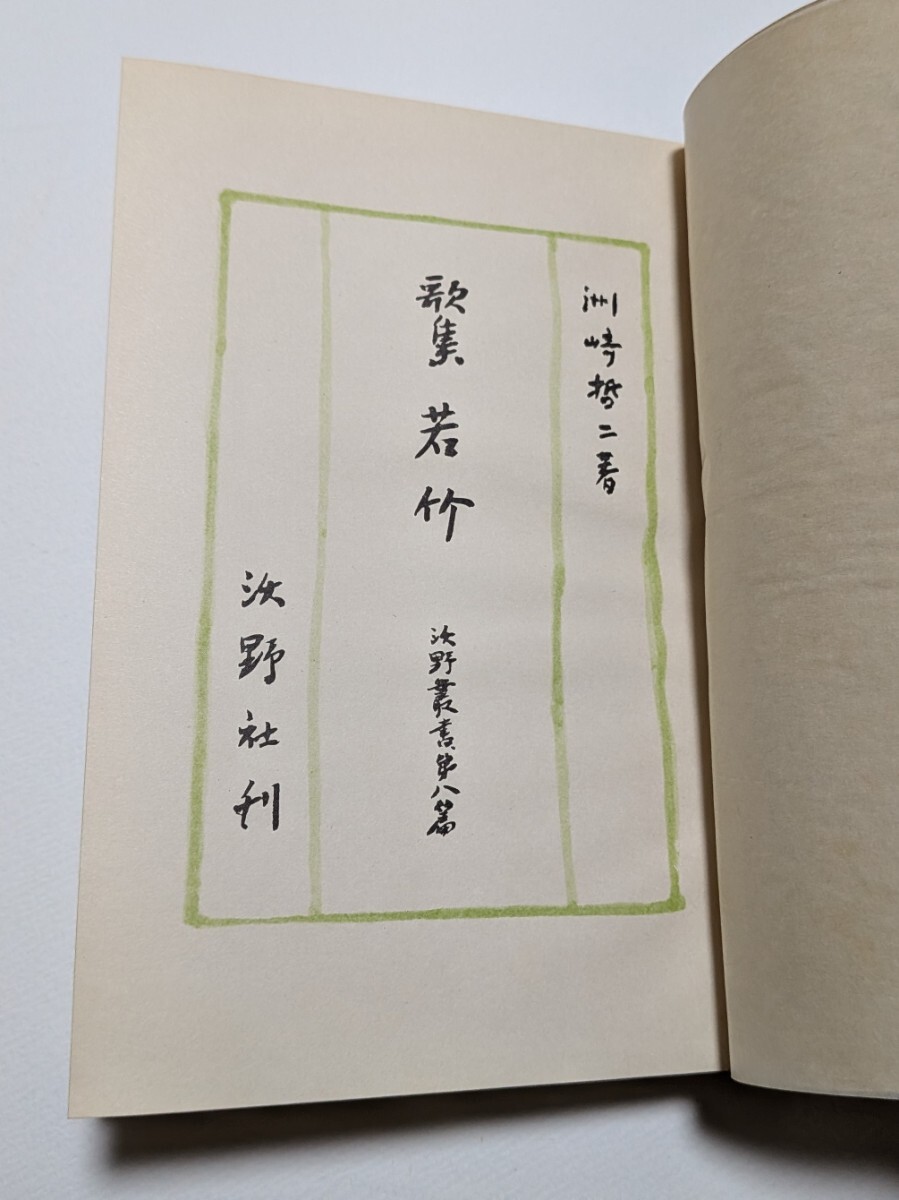 洲崎哲二著
歌集 若竹
汝野叢書第八篇
汝野社刊